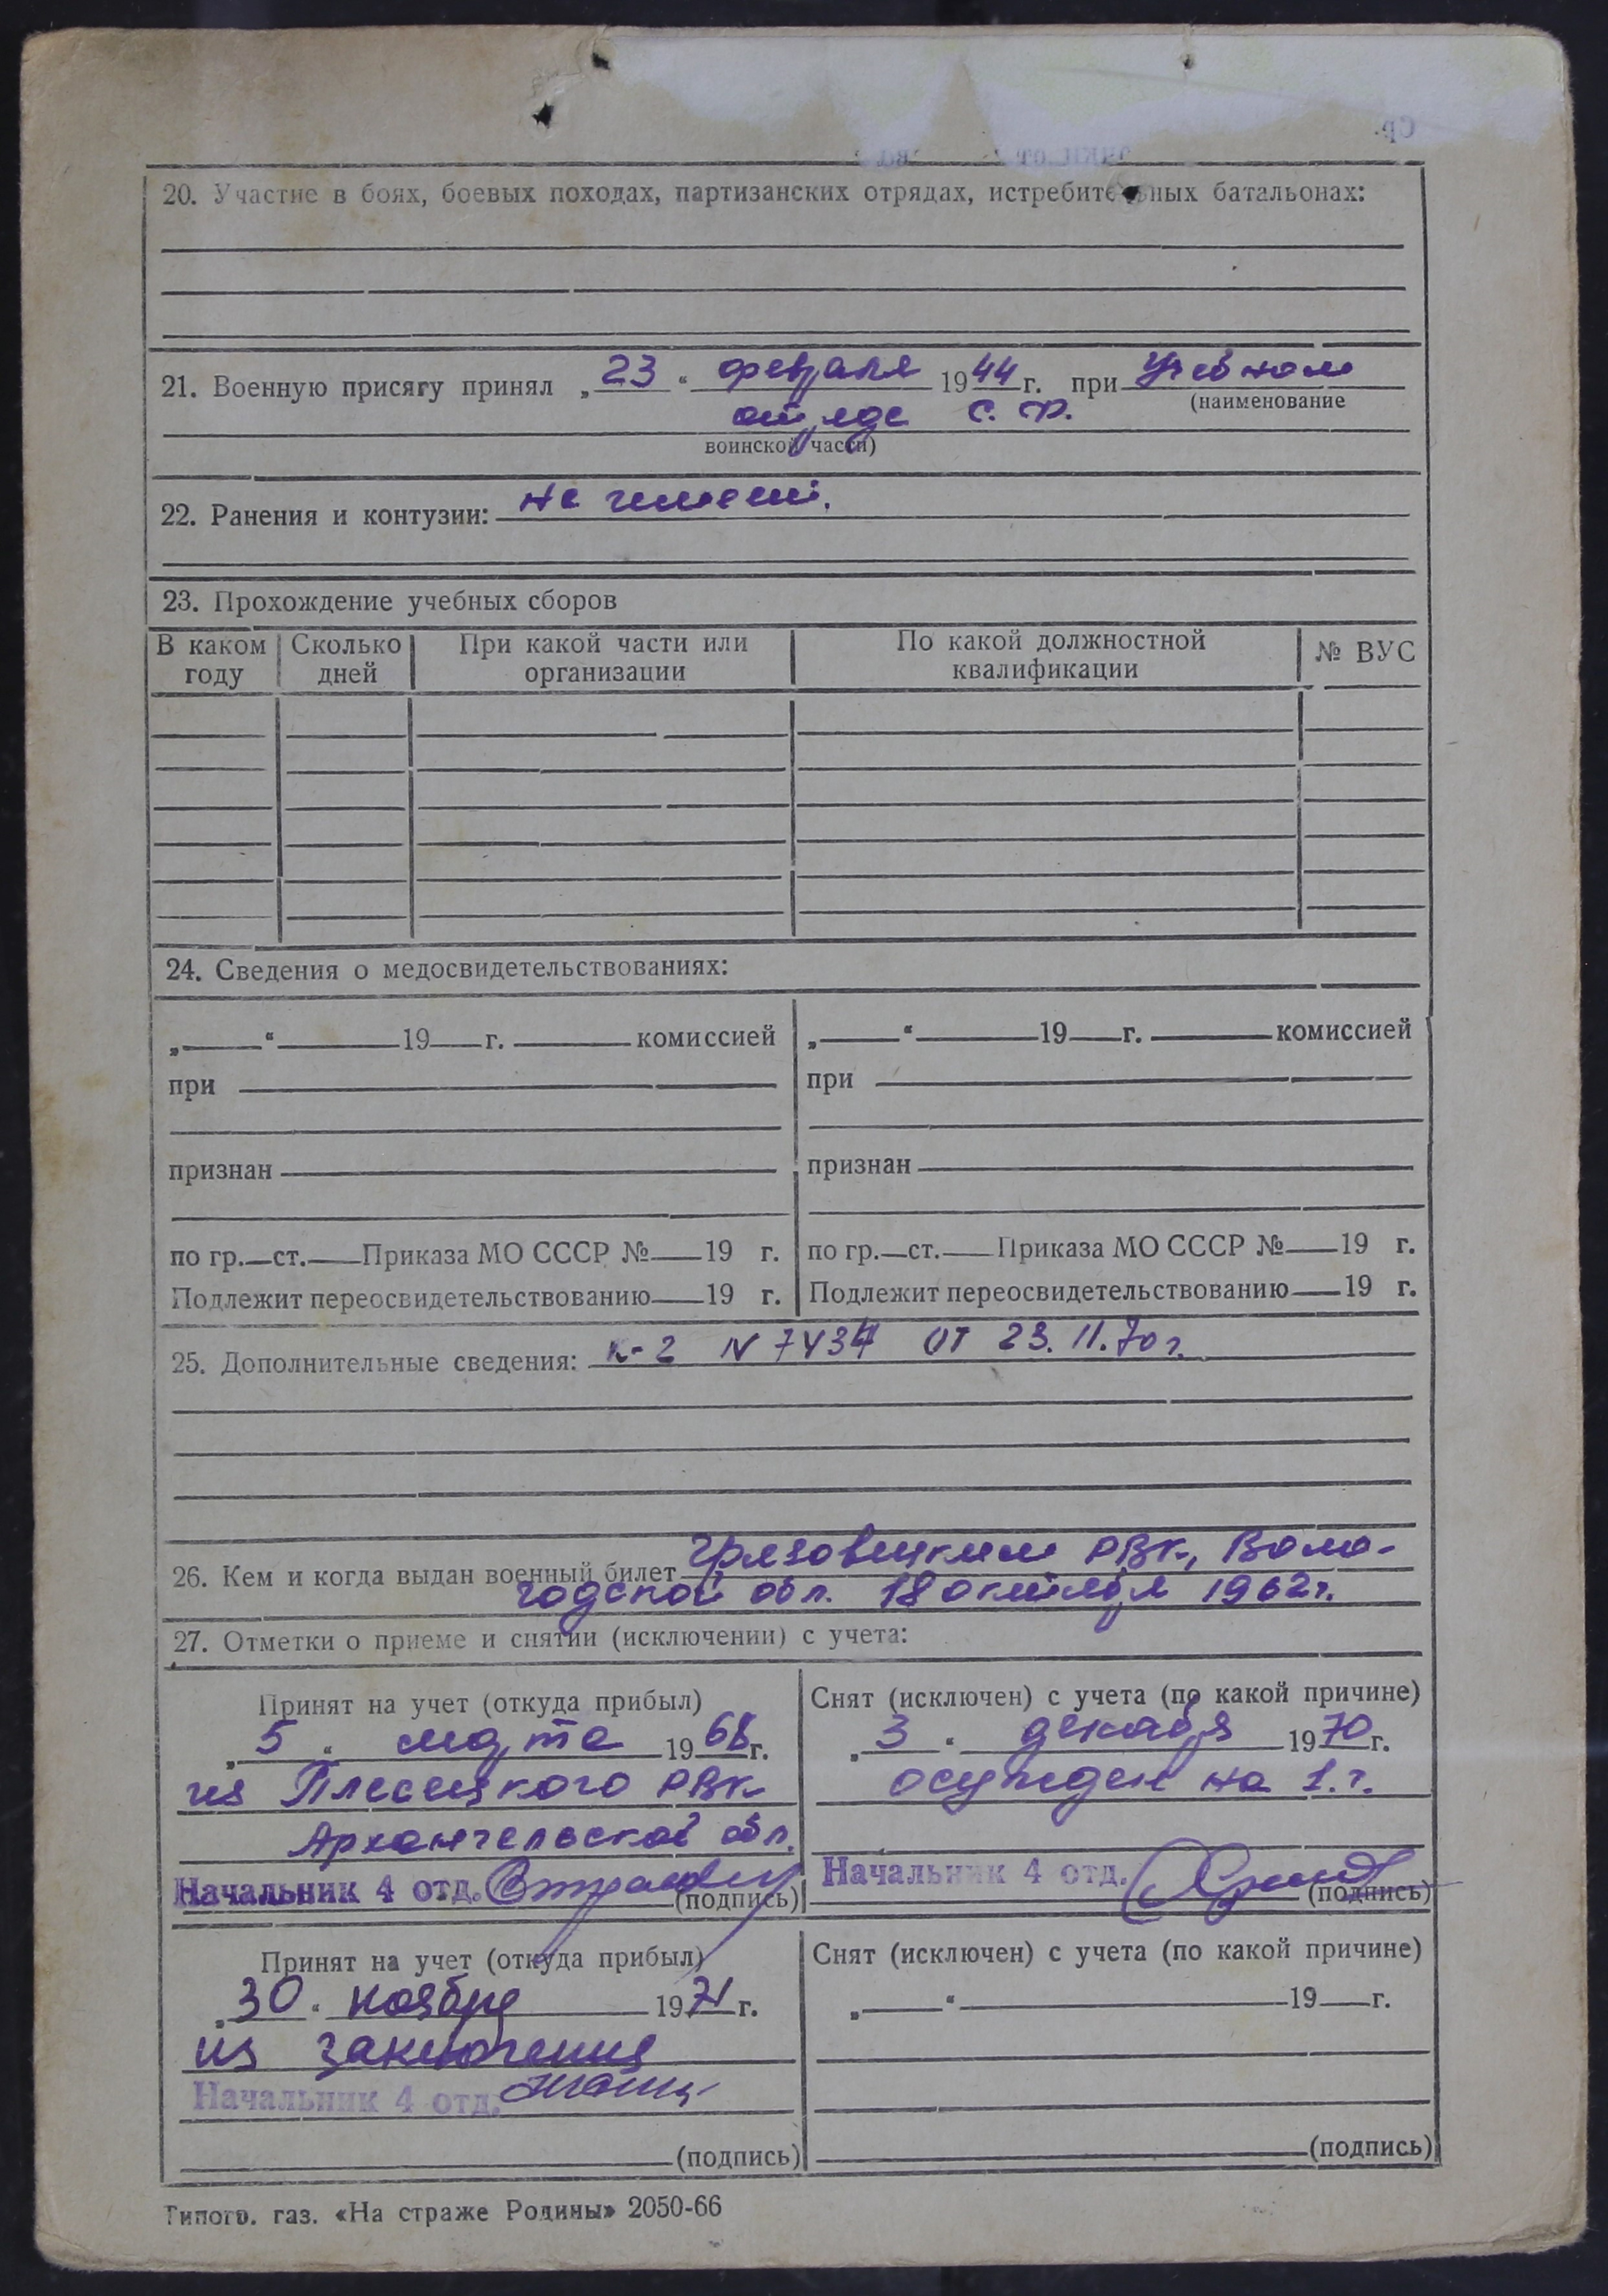 20. Участие в боях, боевых походах, партизанских отрядах, истребительных батальонах:
21. Военную присягу принял „23“ февраля 1944 г. при Учебном
(наименование
отряде С. Ф.
воинской части)
22. Ранения и контузии: не имеет.
23. Прохождение учебных сборов
В каком году | Сколько дней | При какой части или организации | По какой должностной квалификации | № ВУС
24. Сведения о медосвидетельствованиях:
„ “ 19 г. комиссией | „ “ 19 г. комиссией
при | при
признан | признан
по гр. ст. Приказа МО СССР № 19 г. | по гр. ст. Приказа МО СССР № 19 г.
Подлежит переосвидетельствованию 19 г. | Подлежит переосвидетельствованию 19 г.
25. Дополнительные сведения: К-2 N от 23.11.70 г.
26. Кем и когда выдан военный билет Грязовецким РВК, Воло-
годской обл. 18 октября 1962 г.
27. Отметки о приеме и снятии (исключении) с учета:
Принят на учет (откуда прибыл)
„5“ марта 1968 г.
из Плесецкого РВК
Архангельской обл.
Начальник 4 отд.
(подпись)
Снят (исключен) с учета (по какой причине)
„3“ декабря 1970 г.
осужден на 1. г.
Начальник 4 отд.
(подпись)
Принят на учет (откуда прибыл)
„30“ ноября 1971 г.
из заключения
Начальник 4 отд.
(подпись)
Снят (исключен) с учета (по какой причине)
„ “ 19 г.
(подпись)
Типогр. газ. «На страже Родины» 2050-66